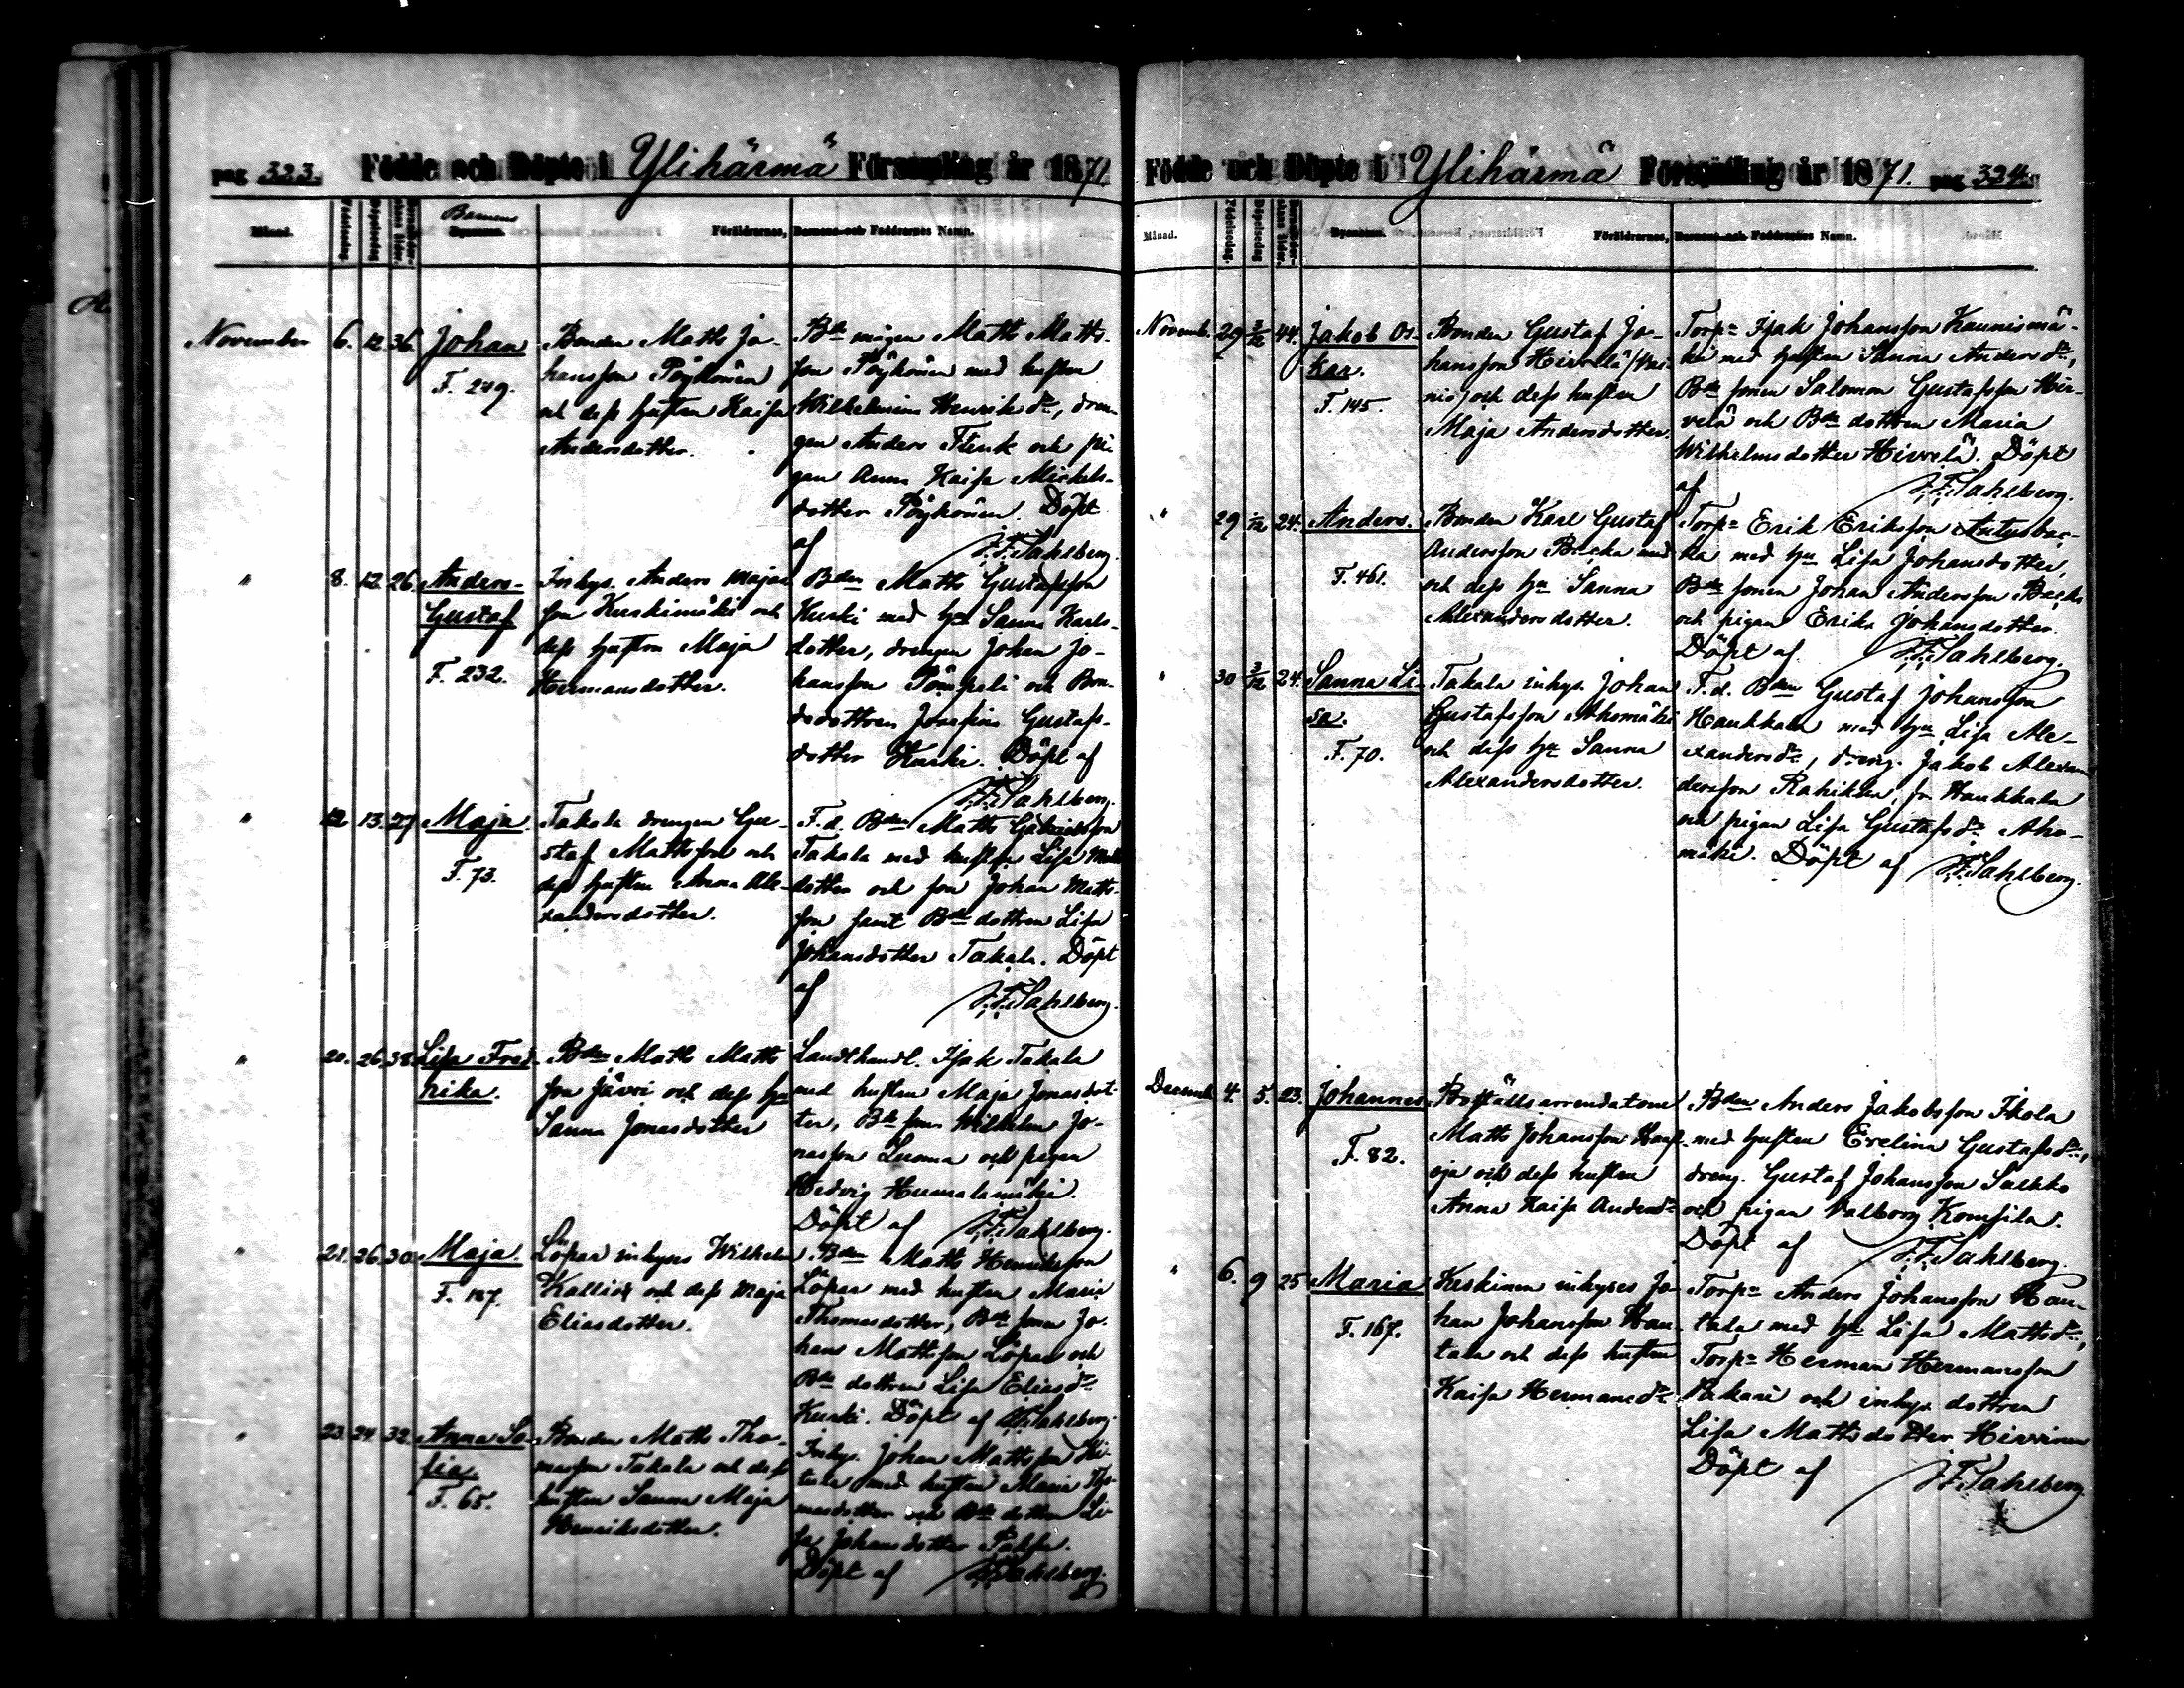 pag 323. Födde och Döpte i Ylihärmä Församling år 1871.
Månad. Födelsedag Döpelsedag Barnens Föräldrarnes, Barnens och Faddrarnes Namn.
November 6. 12 36. Johan
F. 249.
Bonden Matts Jo-
hansson Pöyhönen
och dess hustru Kaisa
Andersdotter.
Bde mågen Matts Matts-
son Pöyhönen med hustru
Wilhelmina Henriksdr, dren-
gen Anders Flink och pi-
gan Anna Kaisa Mickels-
dotter Pöyhönen. Döpt
af J. F. Sahlberg.
" 8. 12. 26. Anders
Gustaf
F. 232.
Inhys. Anders Majas
son Kuskimäki och
dess hustru Maja
Hermansdotter.
Bden Matts Gustafsson
Kuski med hu Sanna Karls-
dotter, drengen Johan Jo-
hansson Pömpeli och Bon-
dedottren Josefina Gustafs-
dotter Kuski. Döpt af
J. F. Sahlberg.
" 12 13. 27 Maja.
F. 73.
Takala drengen Gu-
staf Mattsson och
dess hustru Anna Ale-
xandersdotter.
F. d. Bden Matts Gabrielsson
Takala med hustru Lisa Matts
dotter och son Johan Matts-
son samt Bde dottren Lisa
Johansdotter Takala. Döpt
af J. F. Sahlberg.
" 20. 26. 38 Lisa Fred-
rika.
Bden Matts Matts
son Järvi och dess hu
Sanna Jonasdotter
Landthandl. Isak Takala
med hustru Maja Jonasdot-
ter, Bde son Wilhelm Jo-
nasson Luoma och pigan
Hedvig Humalamäki.
Döpt af J. F. Sahlberg.
" 21. 26. 30 Maja.
F. 187.
Löpar inhyses Wilhelm
Kallio och dess Maja
Eliasdotter.
Bden Matts Henriksson
Löpar med hustru Maria
Thomasdotter, Bde sonen Jo-
han Mattsson Löpar och
Bde dottren Lisa Eliasdr
Kuski. Döpt af J. F. Sahlberg.
" 23. 24. 32 Anna So-
fia.
F. 65.
Bonden Matts Tho-
masson Takala och dess
hustru Sanna Maja
Henriksdotter.
Inhys. Johan Mattsson
med hustru Maria Tho-
masdotter och Bde dottren Li-
sa Johansdotter
Döpt af J. F. Sahlberg.
Födde och Döpte i Ylihärmä Församling år 1871. pag 324.
Månad. Födelsedag. Döpelsedag Föräldrarnes, Barnens och Faddrarnes Namn.
Novemb. 29 3/12 44. Jakob Os-
kar.
F. 145.
Bonden Gustaf Jo-
hansson Hirvelä
och dess hustru
Maja Andersdotter.
Torpn Isak Johansson Kaunismä-
ki med hustru Sanna Andersdr,
Bde sonen Salomon Gustafsson Hir-
velä och Bde dottren Maria
Wilhelmsdotter Hirvelä. Döpt
af J. F. Sahlberg.
" 29 24. Anders.
F. 461.
Bonden Karl Gustaf
Andersson Backa med
och dess hu Sanna
Alexandersdotter.
Torpn Erik Eriksson Antusbac-
ka med hu Lisa Johansdotter,
Bde sonen Johan Andersson Backa
och pigan Erika Johansdotter.
Döpt af J. F. Sahlberg.
" 30 3/12 24. Sanna Li-
sa.
F. 70.
Takala inhys. Johan
Gustafsson Ahomäki
och dess hu Sanna
Alexandersdotter.
F. d. Bden Gustaf Johansson
Haukkala med hu Lisa Ale-
xandersdr, dreng. Jakob Alexan
dersson Rahikka, fr Haukkala
och pigan Lisa Gustafsdr Aho-
mäki. Döpt af J. F. Sahlberg.
Decemb. 4. 5. 23. Johannes
F. 82.
Boställsarrendatorn
Matts Johansson
oja och dess hustru
Anna Kaisa Andersdr
Bden Anders Jakobsson Ikola
med hustru Evelina Gustafsdr,
dreng. Gustaf Johansson Salkko
och pigan Valborg Kompsila.
Döpt af J. F. Sahlberg.
" 6. 9 25 Maria
F. 167.
Keskinen inhyses Jo-
han Johansson Han-
tala och dess hustru
Kaisa Hermansdr
Torpn Anders Johansson Han-
tala med hu Lisa Mattsdr,
Torpn Herman Hermansson
Pukari och inhys. dottren
Lisa Mattsdotter Hirvinen
Döpt af J. F. Sahlberg